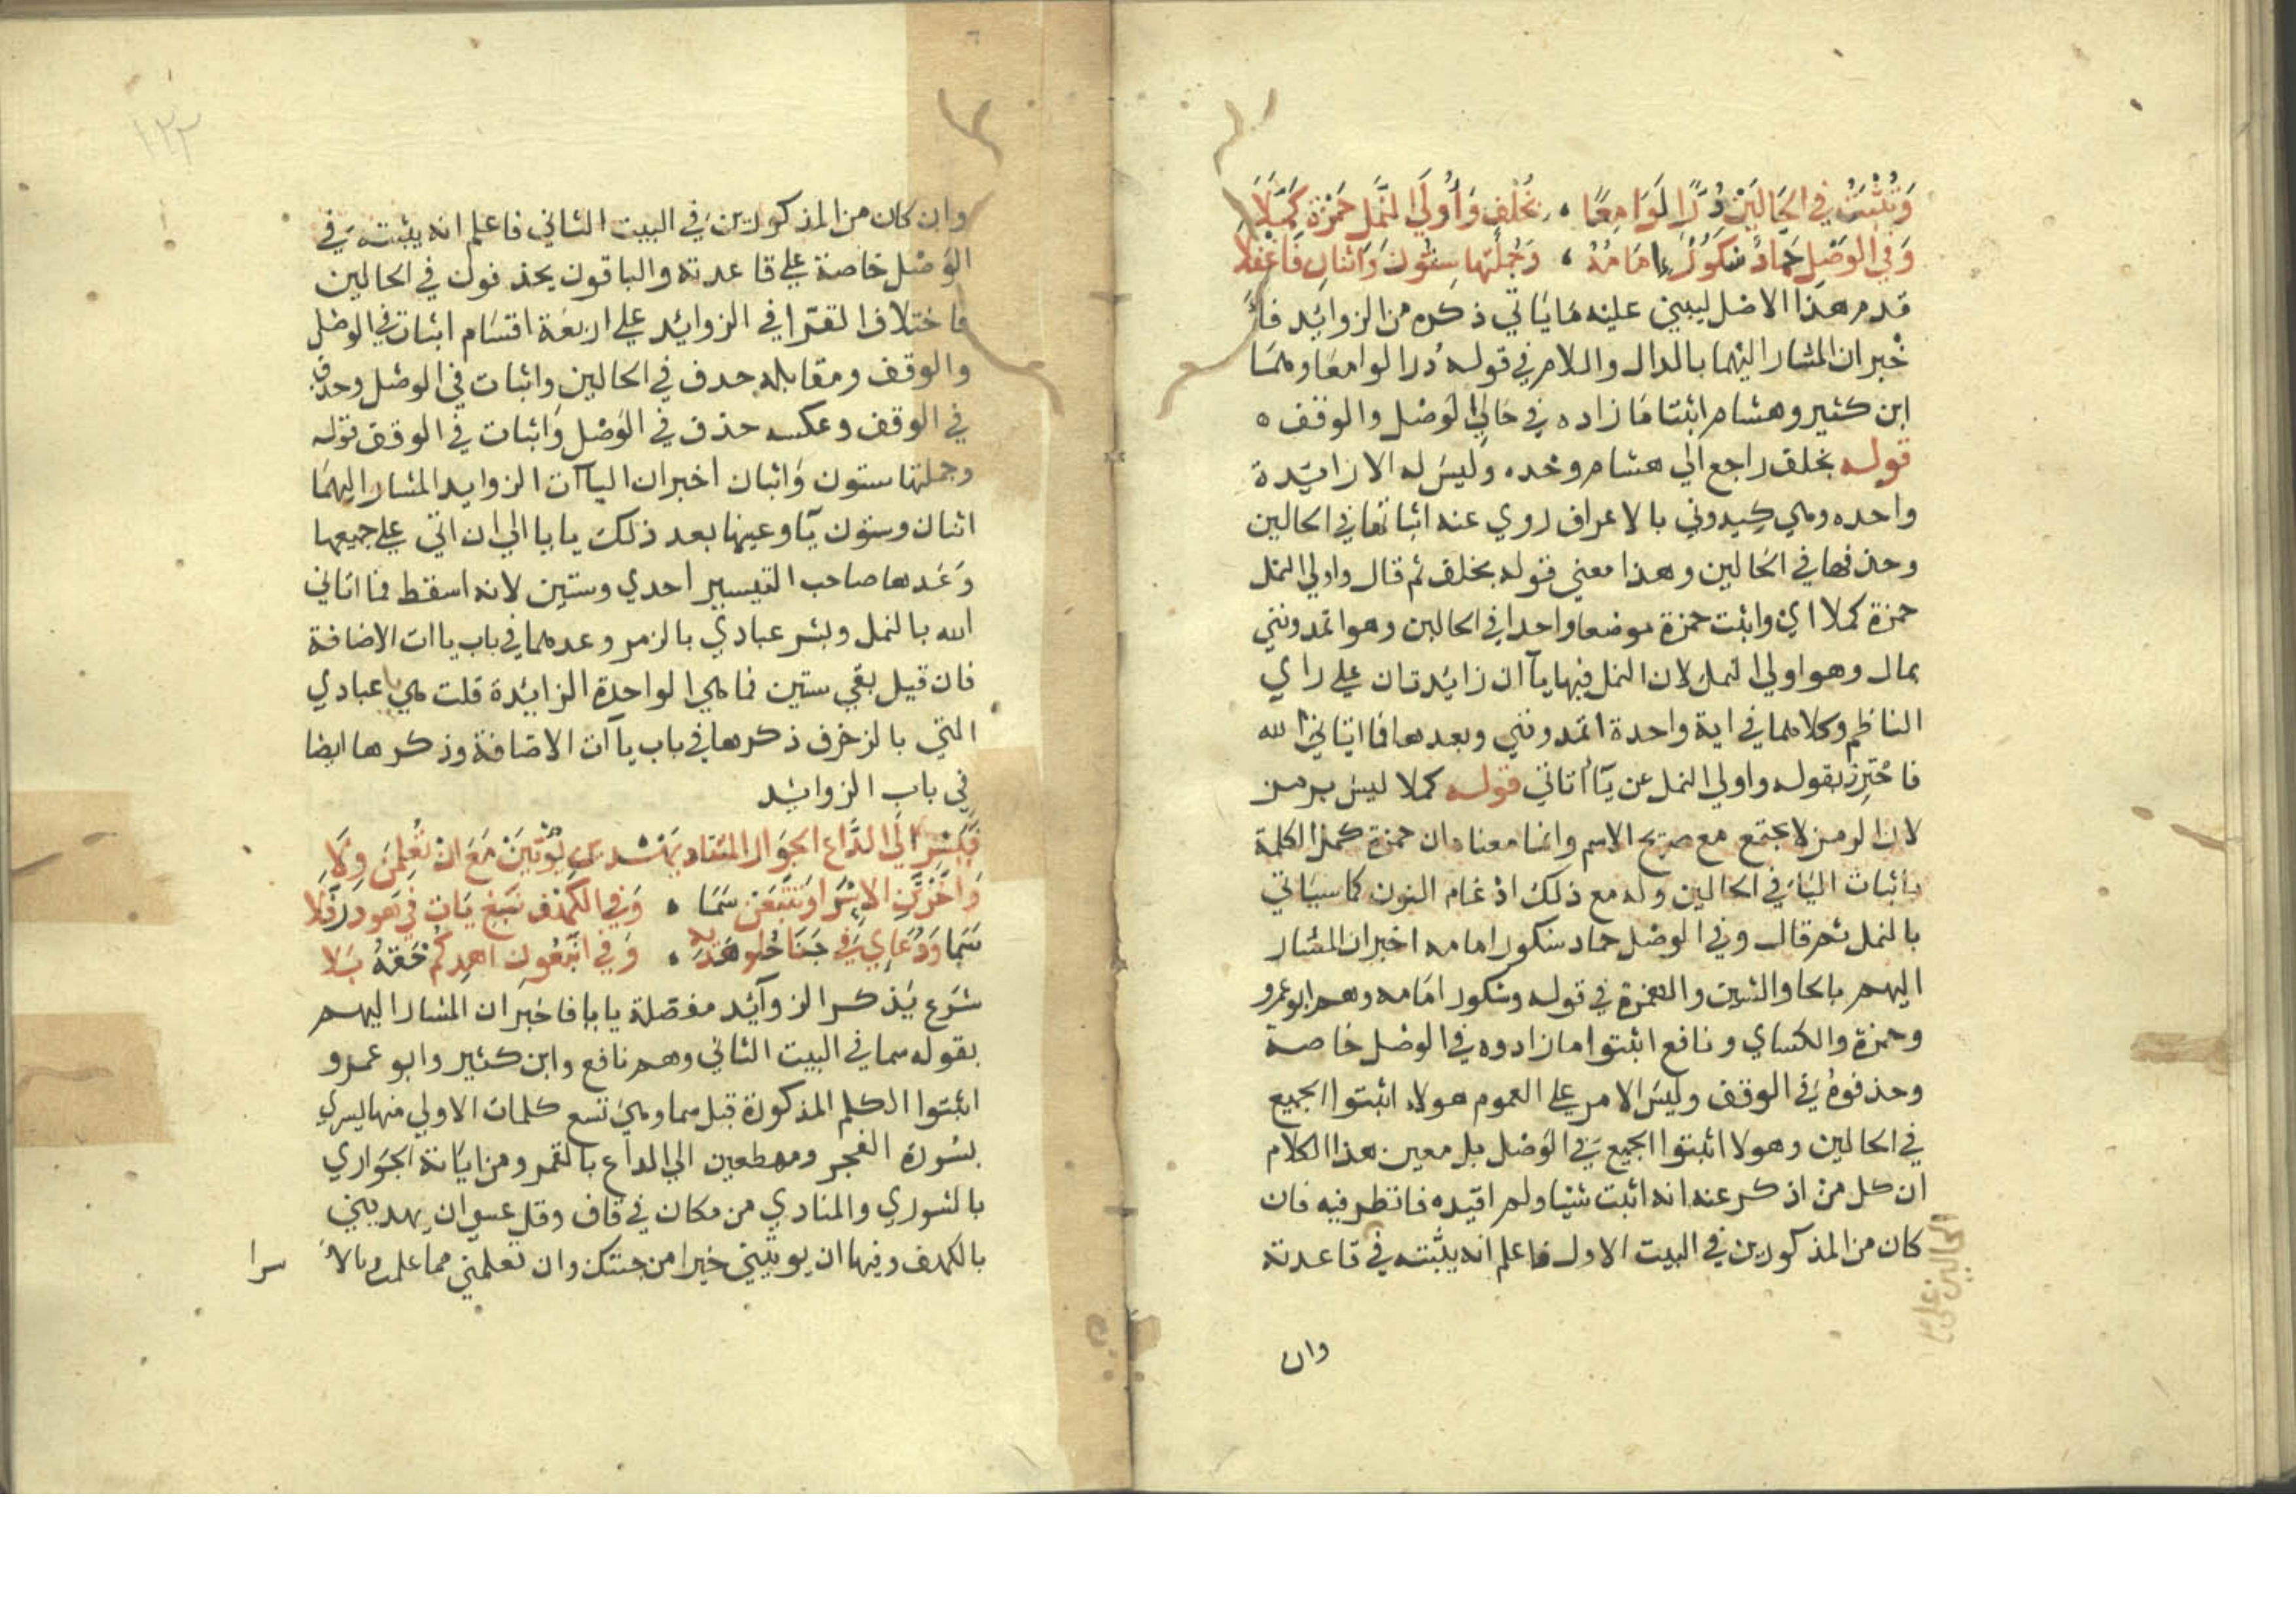 وَتَثْبُتُ فِي الحَالَيْنِ دُرًّا لَوَامِعًا ، بِخُلْفٍ وَأُولَى النَّمْلِ حَمْزَةُ كَمَّلَا
وَفِي الوَصْلِ حَمَّادٌ شَكُورٌ إِمَامُهُ ، وَجُمْلَتُهَا سِتُّونَ وَاثْنَانِ فَاعْقِلَا
قدم هذا الاصل ليبني عليه ما ياتي ذكره من الزوائد فا
خبر ان المشار اليهما بالدال واللام في قوله درا لوامعا وهما
ابن كثير وهشام اثبتا ما زاده في حالي الوصل والوقف ه
قوله بخلف راجع الي هشام وحده وليس له الا زايدة
واحده وهي كيدوني بالاعراف روي عنه اثباتها في الحالين
وحذفها في الحالين وهذا معني قوله بخلف ثم قال واولي النمل
حمزة كملا اي واثبت حمزة موضعا واحدا في الحالين وهو اتمدونني
بمال وهو اولي النمل لان النمل فيها يآ ان زايدتان علي راي
الناظم وكلاهما في اية واحدة اتمدونني وبعدها فما اتاني الله
فاحترز بقوله واولي النمل عن يآ اتاني قوله كملا ليس برمز
لان الرمز لا يجتمع مع صريح الاسم وانما معناه ان حمزة كمل الكلمة
باثبات اليا في الحالين وله مع ذلك ادغام النون كما سياتي
بالنمل ثم قال وفي الوصل حماد شكور امامه اخبر ان المشار
اليهم بالحا والشين والهمزة في قوله وشكور امامه وهم ابو عمرو
وحمزة والكساي ونافع اثبتوا ما زادوه في الوصل خاصة
وحذفوه في الوقف وليس الامر علي العموم هولاء اثبتوا الجميع
في الحالين وهولا اثبتوا الجميع في الوصل بل معين هذا الكلام
ان كل من اذكر عنه انه اثبت شيا ولم اقيده فانظر فيه فان
كان من المذكورين في البيت الاول فاعلم انه يثبته في قاعدته
الحالين علي
وان
١٢٢
وان كان من المذكورين في البيت الثاني فاعلم انه يثبته في
الوصل خاصة علي قاعدته والباقون يحذفون في الحالين
فاختلاف القرا في الزوائد علي اربعة اقسام اثبات في الوصل
والوقف ومقابله حدف في الحالين واثبات في الوصل وحدف
في الوقف وعكسه حذف في الوصل واثبات في الوقف قوله
وجملتها ستون واثنان اخبر ان اليآآت الزوايد المشار اليهما
اثنان وستون يآ وعينها بعد ذلك يا يا الي ان اتي علي جميعها
وعدها صاحب التيسير احدي وستين لانه اسقط فما اتاني
الله بالنمل وبشر عبادي بالزمر وعدهما في باب ياات الاضافة
فان قيل بقي ستين فما هي الواحدة الزايدة قلت هي يا عبادي
التي بالزخرف ذكرها في باب يآ آت الاضافة وذكرها ايضا
في باب الزوائد
فَيَسْرِ إِلَى الدَّاعِ الجَوَارِ المُنَادِ يَهْدِيَن يُؤْتِيَنْ مَعَ اَنْ تُعَلِّمَنِ وِلَا
وَأَخَّرْتَنِ الاِسْرَا وَتَتَّبِعَنْ سَمَا ، وَفِي الكَهْفِ نَبْغِ يَأْتِ فِي هُودَ رُفِّلَا
سَمَا وَدُعَائِي فِي جَنَا حُلْوِ هَدْيِهِ ، وَفِي اتَّبِعُونِ اَهْدِكُمْ حَقُّهُ بَلَا
شرع يذكر الزوآئد مفصلة يا يا فاخبر ان المشار اليهم
بقوله سما في البيت الثاني وهم نافع وابن كثير وابو عمرو
اثبتوا الكلم المذكورة قبل سما وهي تسع كلمات الاولي منها يسري
بسورة الفجر ومهطعين الي الداع بالقمر ومن اياته الجواري
بالشوري والمنادي من مكان في قاف وقل عسي ان يهديني
بالكهف وفيها ان يوتيني خيرا من جنتك وان تعلمني مما علمت وبالا
سرا